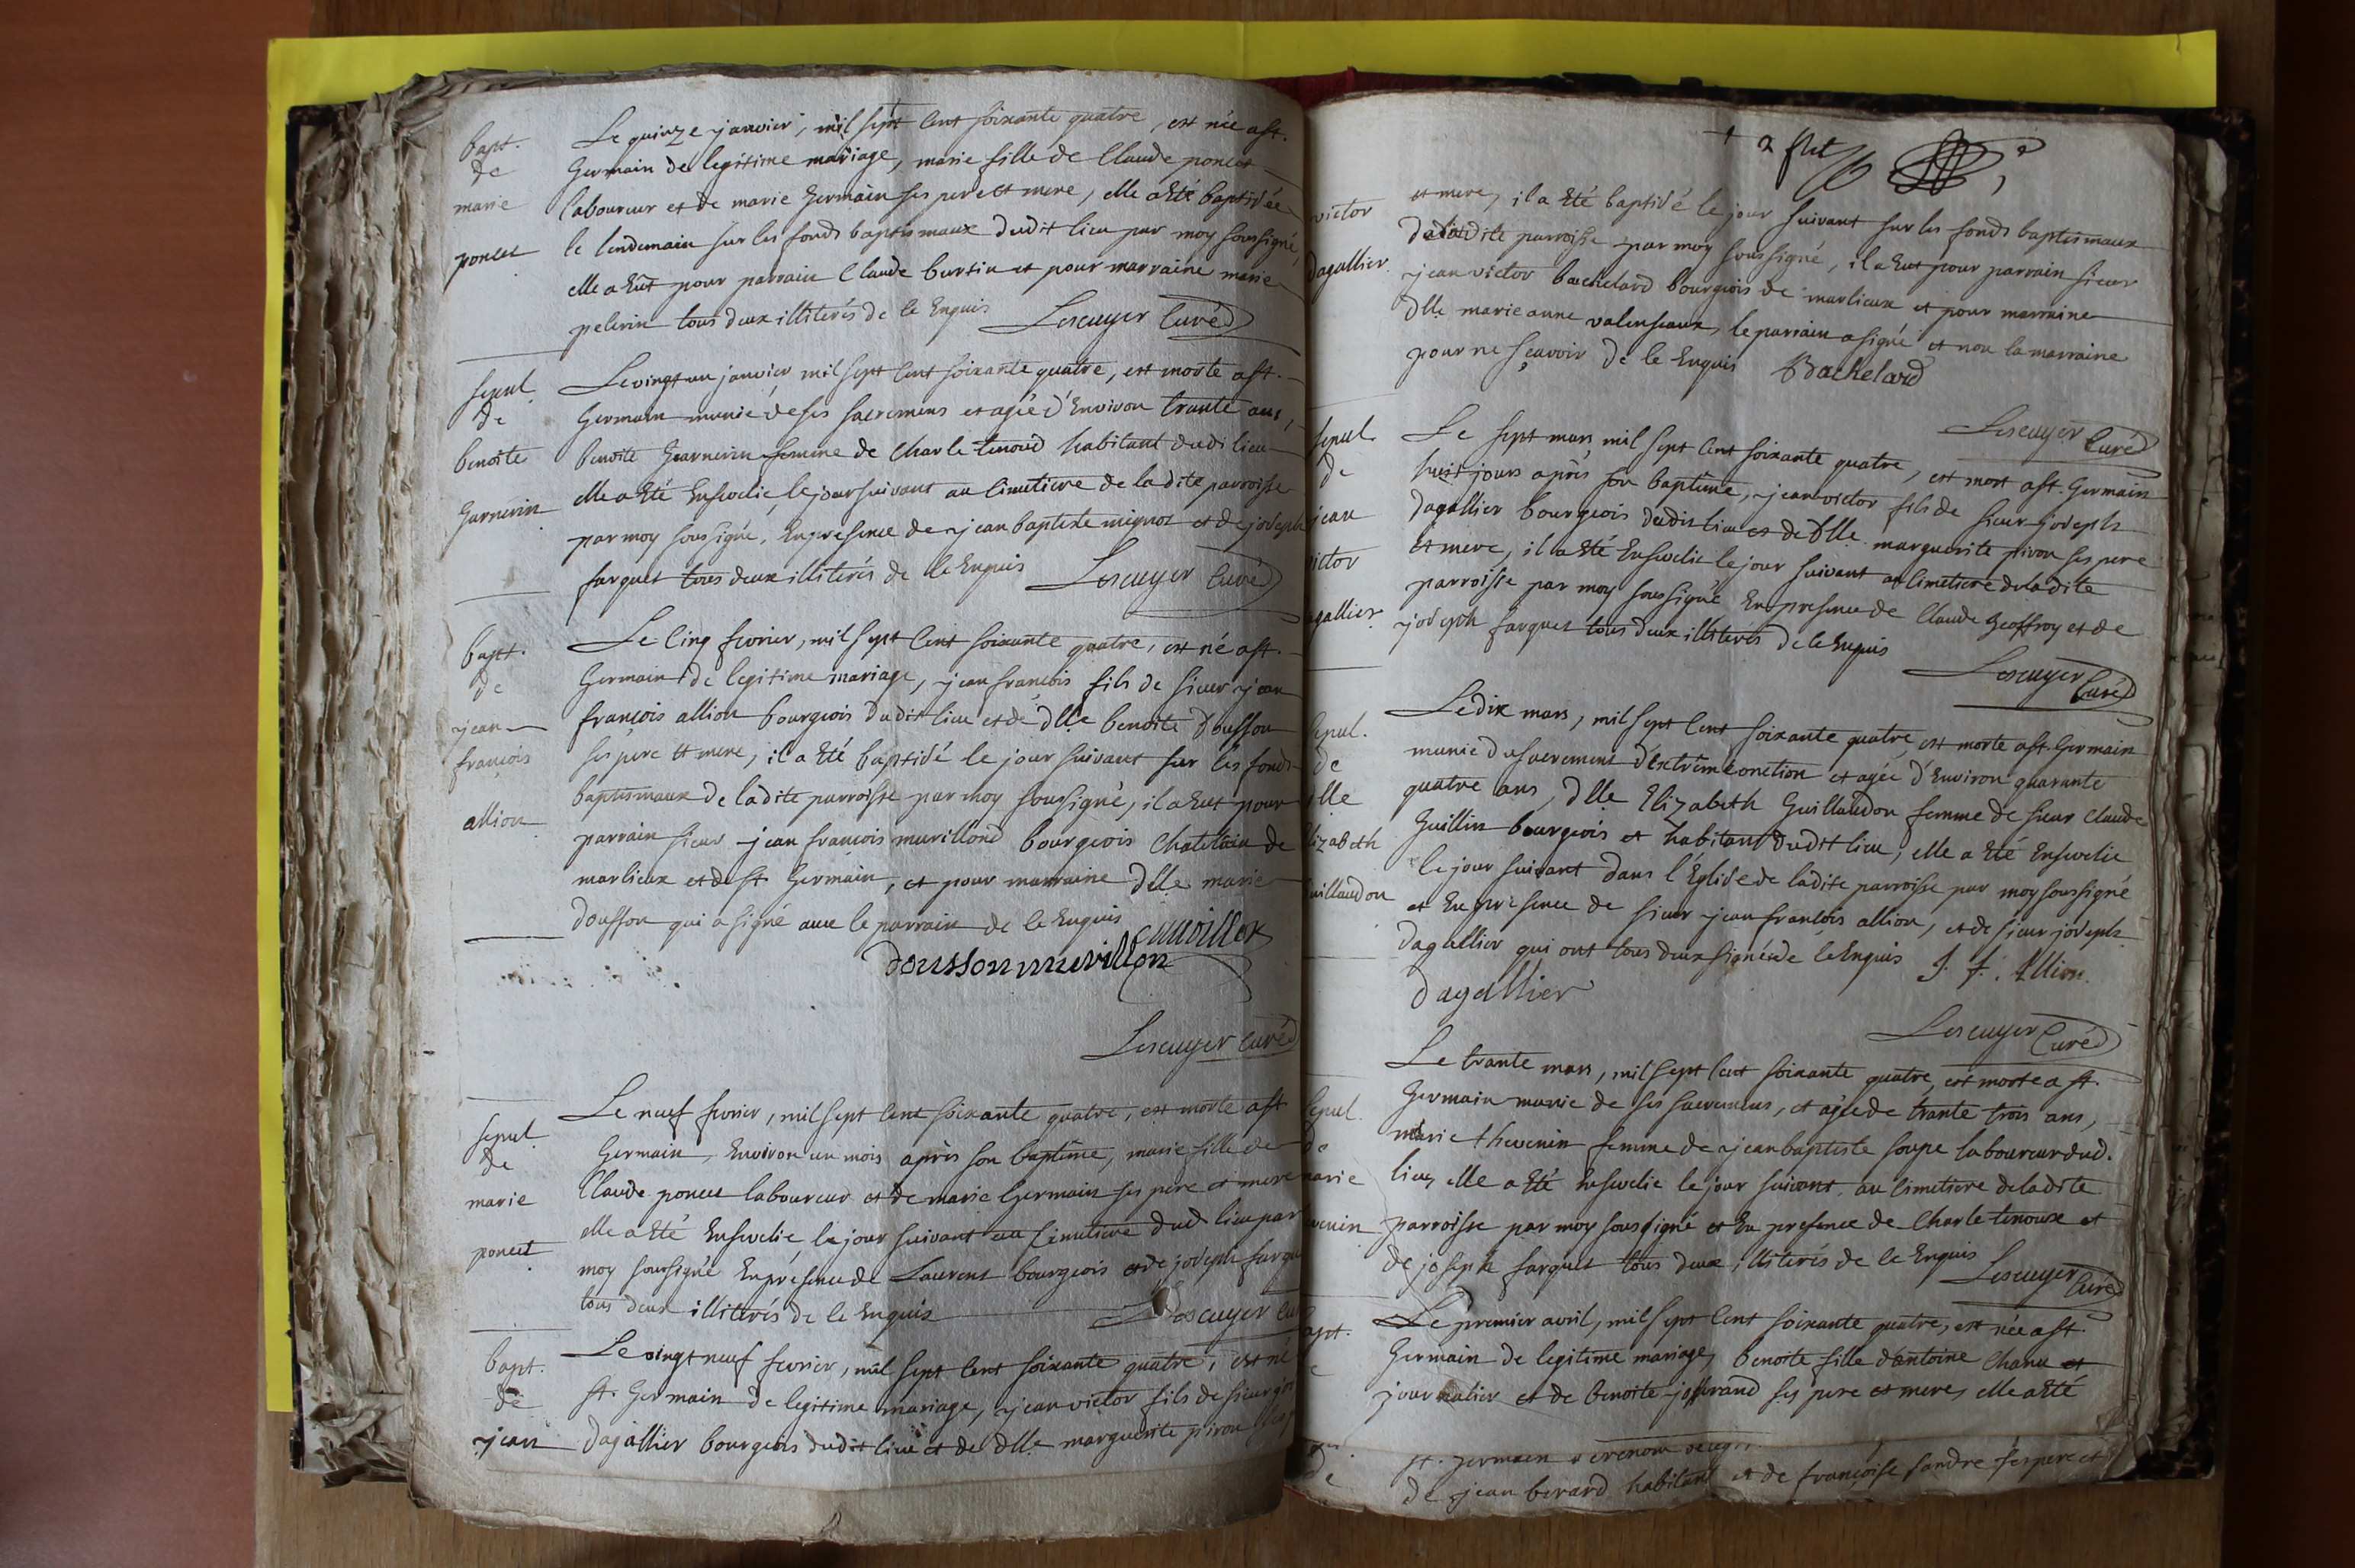 bapt.
de
marie
poncet
Le quinze janvier, mil sept cent soixante quatre, est née a st.
Germain de legitime mariage, marie fille de Claude poncet
laboureur et de marie Germain ses pere et mere, elle a Eté baptisée
le lendemain sur les fonds baptismaux dudit lieu par moy soussigné,
elle a Eut pour parrain Claude burtin et pour marraine marie
pelerin tous deux illiterés de ce Enquis Lescuyer Curé
sepul.
de
benoite
Garnerin
Le vingt un janvier mil sept cent soixante quatre, est morte a st.
Germain munie de ses sacremens et agée d'Environ trante ans,
benoite Guarnerin femme de Charle tenoud habitant dudi lieu
elle a Eté Ensevelie, le jour suivant au Cimetiere de la dite parroisse
par moy soussigné, En presence de jean baptiste mignot et de joseph
farguet tous deux illiterés de ce Enquis Lescuyer Curé
bapt.
de
jean
françois
allion
Le Cinq fevrier, mil sept cent soixante quatre, est né a st.
Germain de legitime mariage, jean françois fils de sieur jean
françois allion bourgeois dudit lieu et de dlle benoite dousson
ses pere et mere, il a Eté baptisé le jour suivant sur les fonds
baptismaux de ladite parroisse par moy soussigné, il a Eut pour
parrain sieur jean françois murillond bourgeois Chatelain de
marlieux et de st. Germain, et pour marraine Dlle marie
dousson qui a signé avec le parrain de ce Enquis
dousson
Lescuyer Curé
sepul
de
marie
poncet
Le neuf fevrier, mil sept cent soixante quatre, est morte a st
Germain, Environ un mois après son baptême, marie fille de
Claude poncet laboureur et de marie Germain ses pere et mere
elle a Eté Ensevelie, le jour suivant au Cimetiere dud. lieu par
moy soussigné En presence de Laurent bourgeois et de joseph
tous deux illiterés de ce Enquis Lescuyer
bapt.
de
jean
Le vingt neuf fevrier, mil sept cent soixante quatre, est né
st. Germain de legitime mariage, jean victor fils de sieur
dagallier bourgeois dudit lieu et de dlle marguerite piron
victor
dagallier
et mere, il a Eté baptisé le jour suivant sur les fonds baptismaux
de ladite parroisse par moy soussigné, il a Eut pour parrain sieur
jean victor bachelard bourgeois de marlieux et pour marraine
Dlle marie anne valenseaux, le parrain a signé et non la marraine
pour ne sçavoir de ce Enquis Bachelard
Lescuyer Curé
sepul.
de
jean
victor
dagallier
Le sept mars mil sept cent soixante quatre, est mort a st. Germain
huit jours après son baptême, jean victor fils de sieur joseph
Dagallier bourgeois dudit lieu et de Dlle marguerite piron ses pere
et mere, il a Eté Ensevelie le jour suivant au Cimetiere de ladite
parroisse par moy soussigné En presence de Claude Geoffroy et de
joseph farguet tous deux illiterés de ce Enquis
Lescuyer Curé
Sepul.
de
dlle
Elizabeth
Guillaudon
Le dix mars, mil sept cent soixante quatre est morte a st. Germain
munie du sacrement d'Extrême onction et agée d'Environ quarante
quatre ans, Dlle Elizabeth Guillaudon femme de sieur Claude
Guillin bourgeois et habitant dudit lieu, elle a Eté Ensevelie
le jour suivant dans l'Eglise de ladite parroisse par moy soussigné
et En presence de sieur jean françois allion, et de sieur joseph
Dagallier qui ont tous deux signés de ce Enquis J. f. Allion.
Dagallier
Lescuyer Curé
Sepul.
de
marie
Le trante mars, mil sept cent soixante quatre, est morte a st.
Germain munie de ses sacremens, et agée de trante trois ans,
marie thevenin femme de jean baptiste soupe laboureur dud.
lieu, elle a Eté Ensevelie le jour suivant au Cimetiere de ladite
parroisse par moy soussigné et En presence de Charle tenoux et
de joseph farguet tous deux illiterés de ce Enquis Lescuyer Curé
Le premier avril, mil sept cent soixante quatre, est née a st.
Germain de legitime mariage, benoite fille d'antoine Chanu et
journalier et de benoite josserand ses pere et mere, elle a Eté
de jean berard habitant et de françoise sandre ses pere et